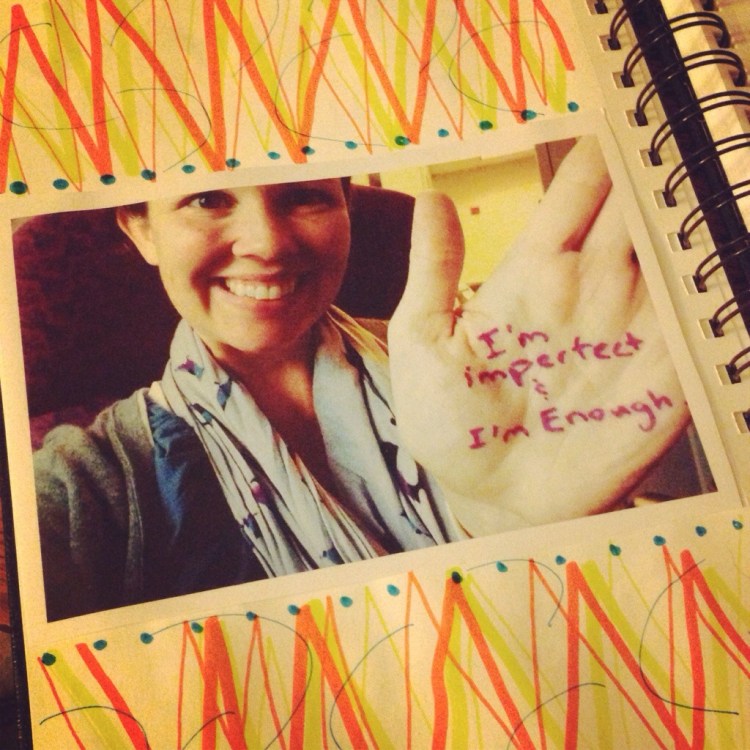 I'm
imperfect
&
I'm Enough